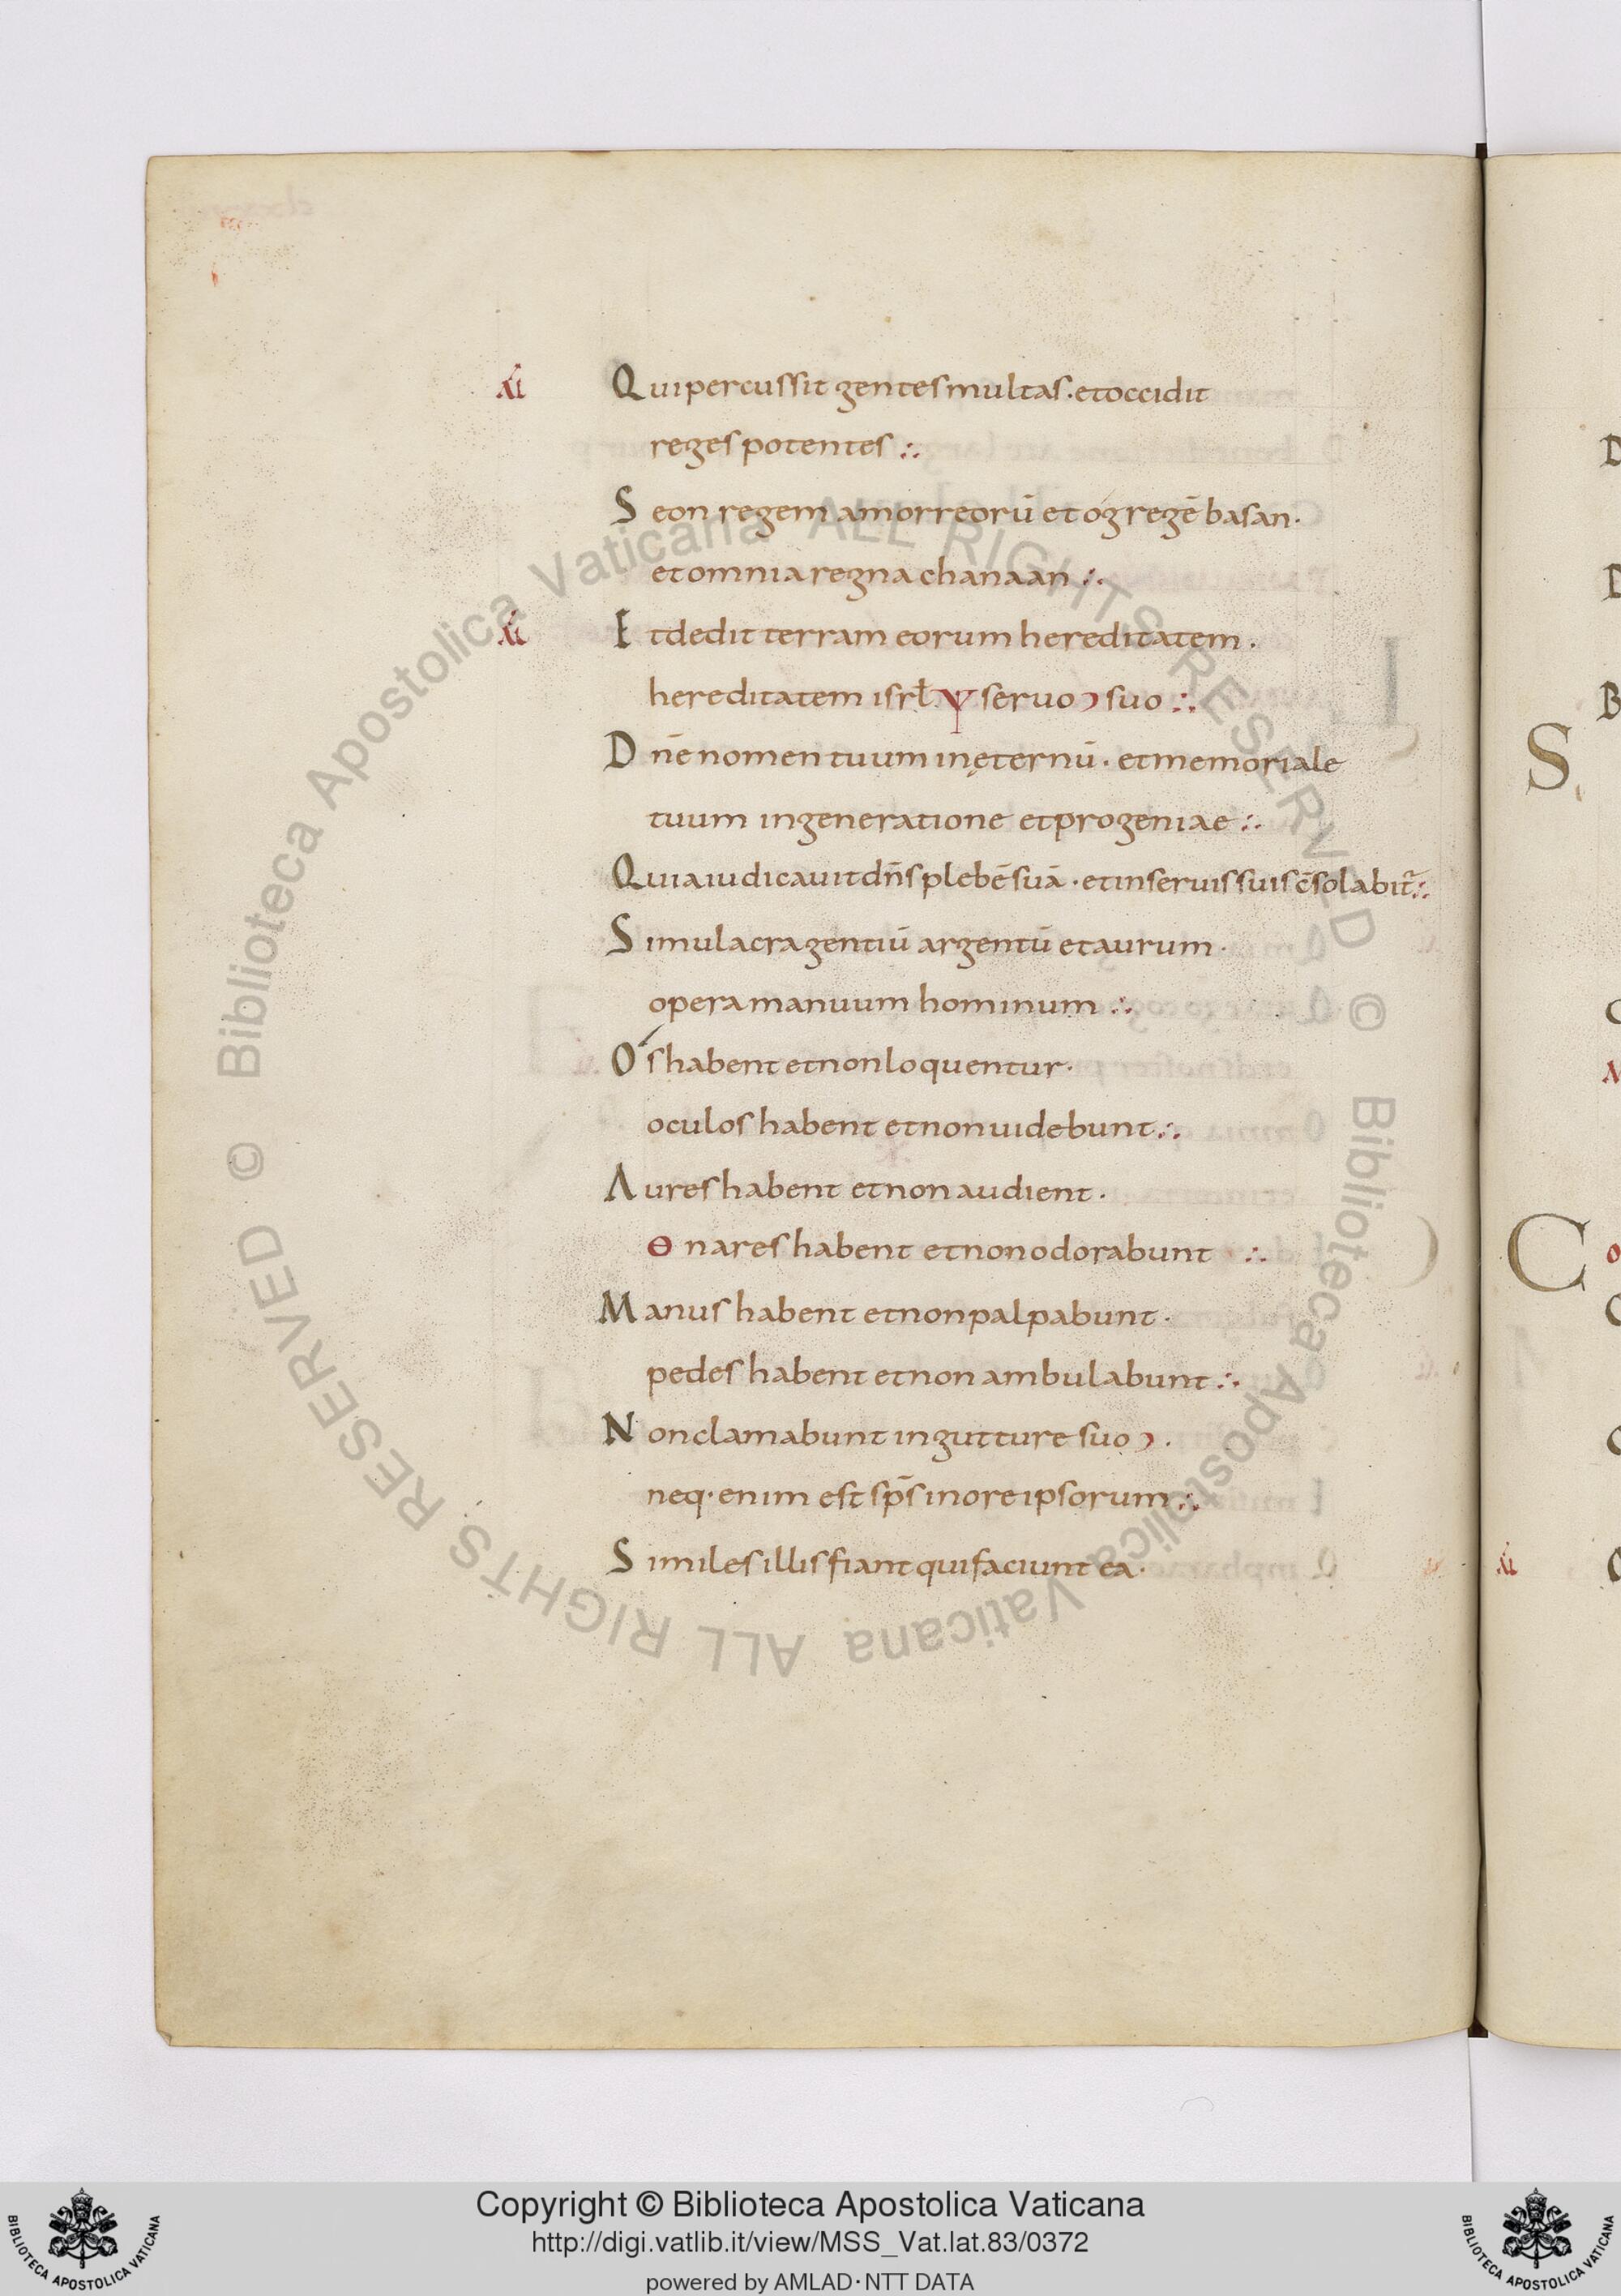 Qui percussit gentes multas · et occidit
reges potentes ∴
Seon regem amorreorū et óg regē basan ·
et omnia regna chanaan ∴
Et dedit terram eorum hereditatem ·
hereditatem isrł Ψ seruo ɔ suo ∴
Dnē nomen tuum in ęternū · et memoriale
tuum in generatione et progeniae ∴
Quia iudicauit dn̄s plebē suā · et in seruis suis c̄solabit̄ ∴
Simulacra gentiū argentū et aurum ·
opera manuum hominum ∴
Ós habent et non loquentur ·
oculos habent et non uidebunt ∴
Aures habent et non audient ·
Θ nares habent et non odorabunt ∴
Manus habent et non palpabunt ·
pedes habent et non ambulabunt ∴
Non clamabunt in gutture suo ɔ ·
neq· enim est sp̄s in ore ipsorum ∴
Similes illis fiant qui faciunt ea ·
D
D
B
S
C
C
Copyright © Biblioteca Apostolica Vaticana
http://digi.vatlib.it/view/MSS_Vat.lat.83/0372
powered by AMLAD·NTT DATA
BIBLIOTECA APOSTOLICA VATICANA
BIBLIOTECA APOSTOLICA VATICANA
© Biblioteca Apostolica Vaticana ALL RIGHTS RESERVED
© Biblioteca Apostolica Vaticana ALL RIGHTS RESERVED